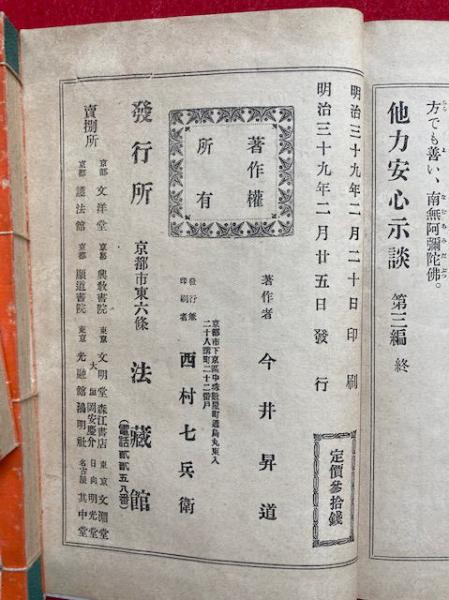 方でも善い、南無阿彌陀佛。
他力安心示談 第三編 終
明治三十九年二月二十日印刷
明治三十九年二月廿五日發行
定價參拾錢
著作權
所有
著作者 今井昇道
京都市下京區中珠數屋町通烏丸東入
二十八講町二十二番戶
發行兼
印刷者
西村七兵衛
發行所 京都市東六條 法藏館
(電話貳貳五八番)
賣捌所
京都 文洋堂 京都 興教書院 東京 文明堂 森江書店 東京 文淵堂
大垣 岡安慶介 日向 明光堂
京都 護法館 京都 顯道書院 東京 光融館 鴻明社 名古屋 其中堂